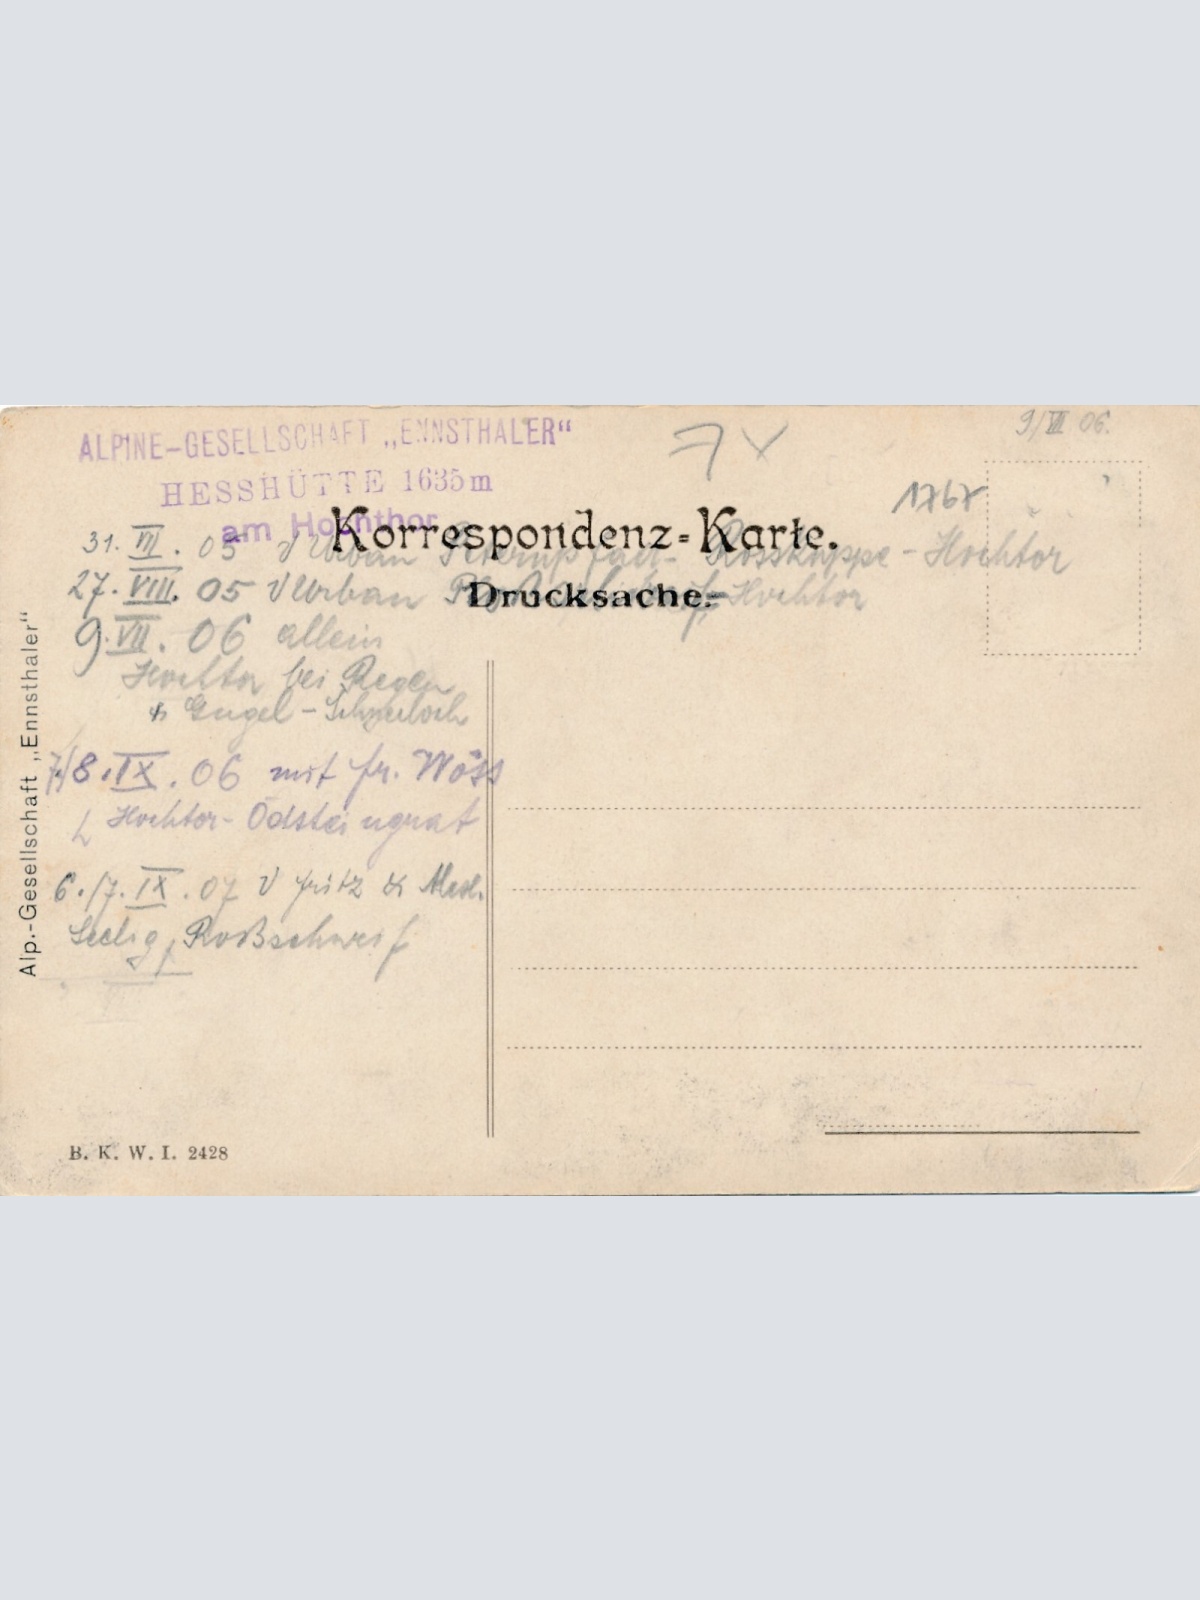 9/VII 06.
ALPINE-GESELLSCHAFT „ENNSTHALER“
HESSHÜTTE 1635m
am Hochthor
1767
Korrespondenz-Karte.
31. VII. 05 v Urban Peternpfad - Rosskuppe - Hochtor
Drucksache.
27. VIII. 05 v Urban Hochtor
9. VII. 06 allein
Hochtor bei Regen
Gugel - Schneeloch
7/8. IX. 06 mit Fr. Wöss
Hochtor - Ödsteingrat
6./7. IX. 07 v Fritz &
Seelig, Roßschweif
Alp.-Gesellschaft „Ennsthaler“
B. K. W. I. 2428